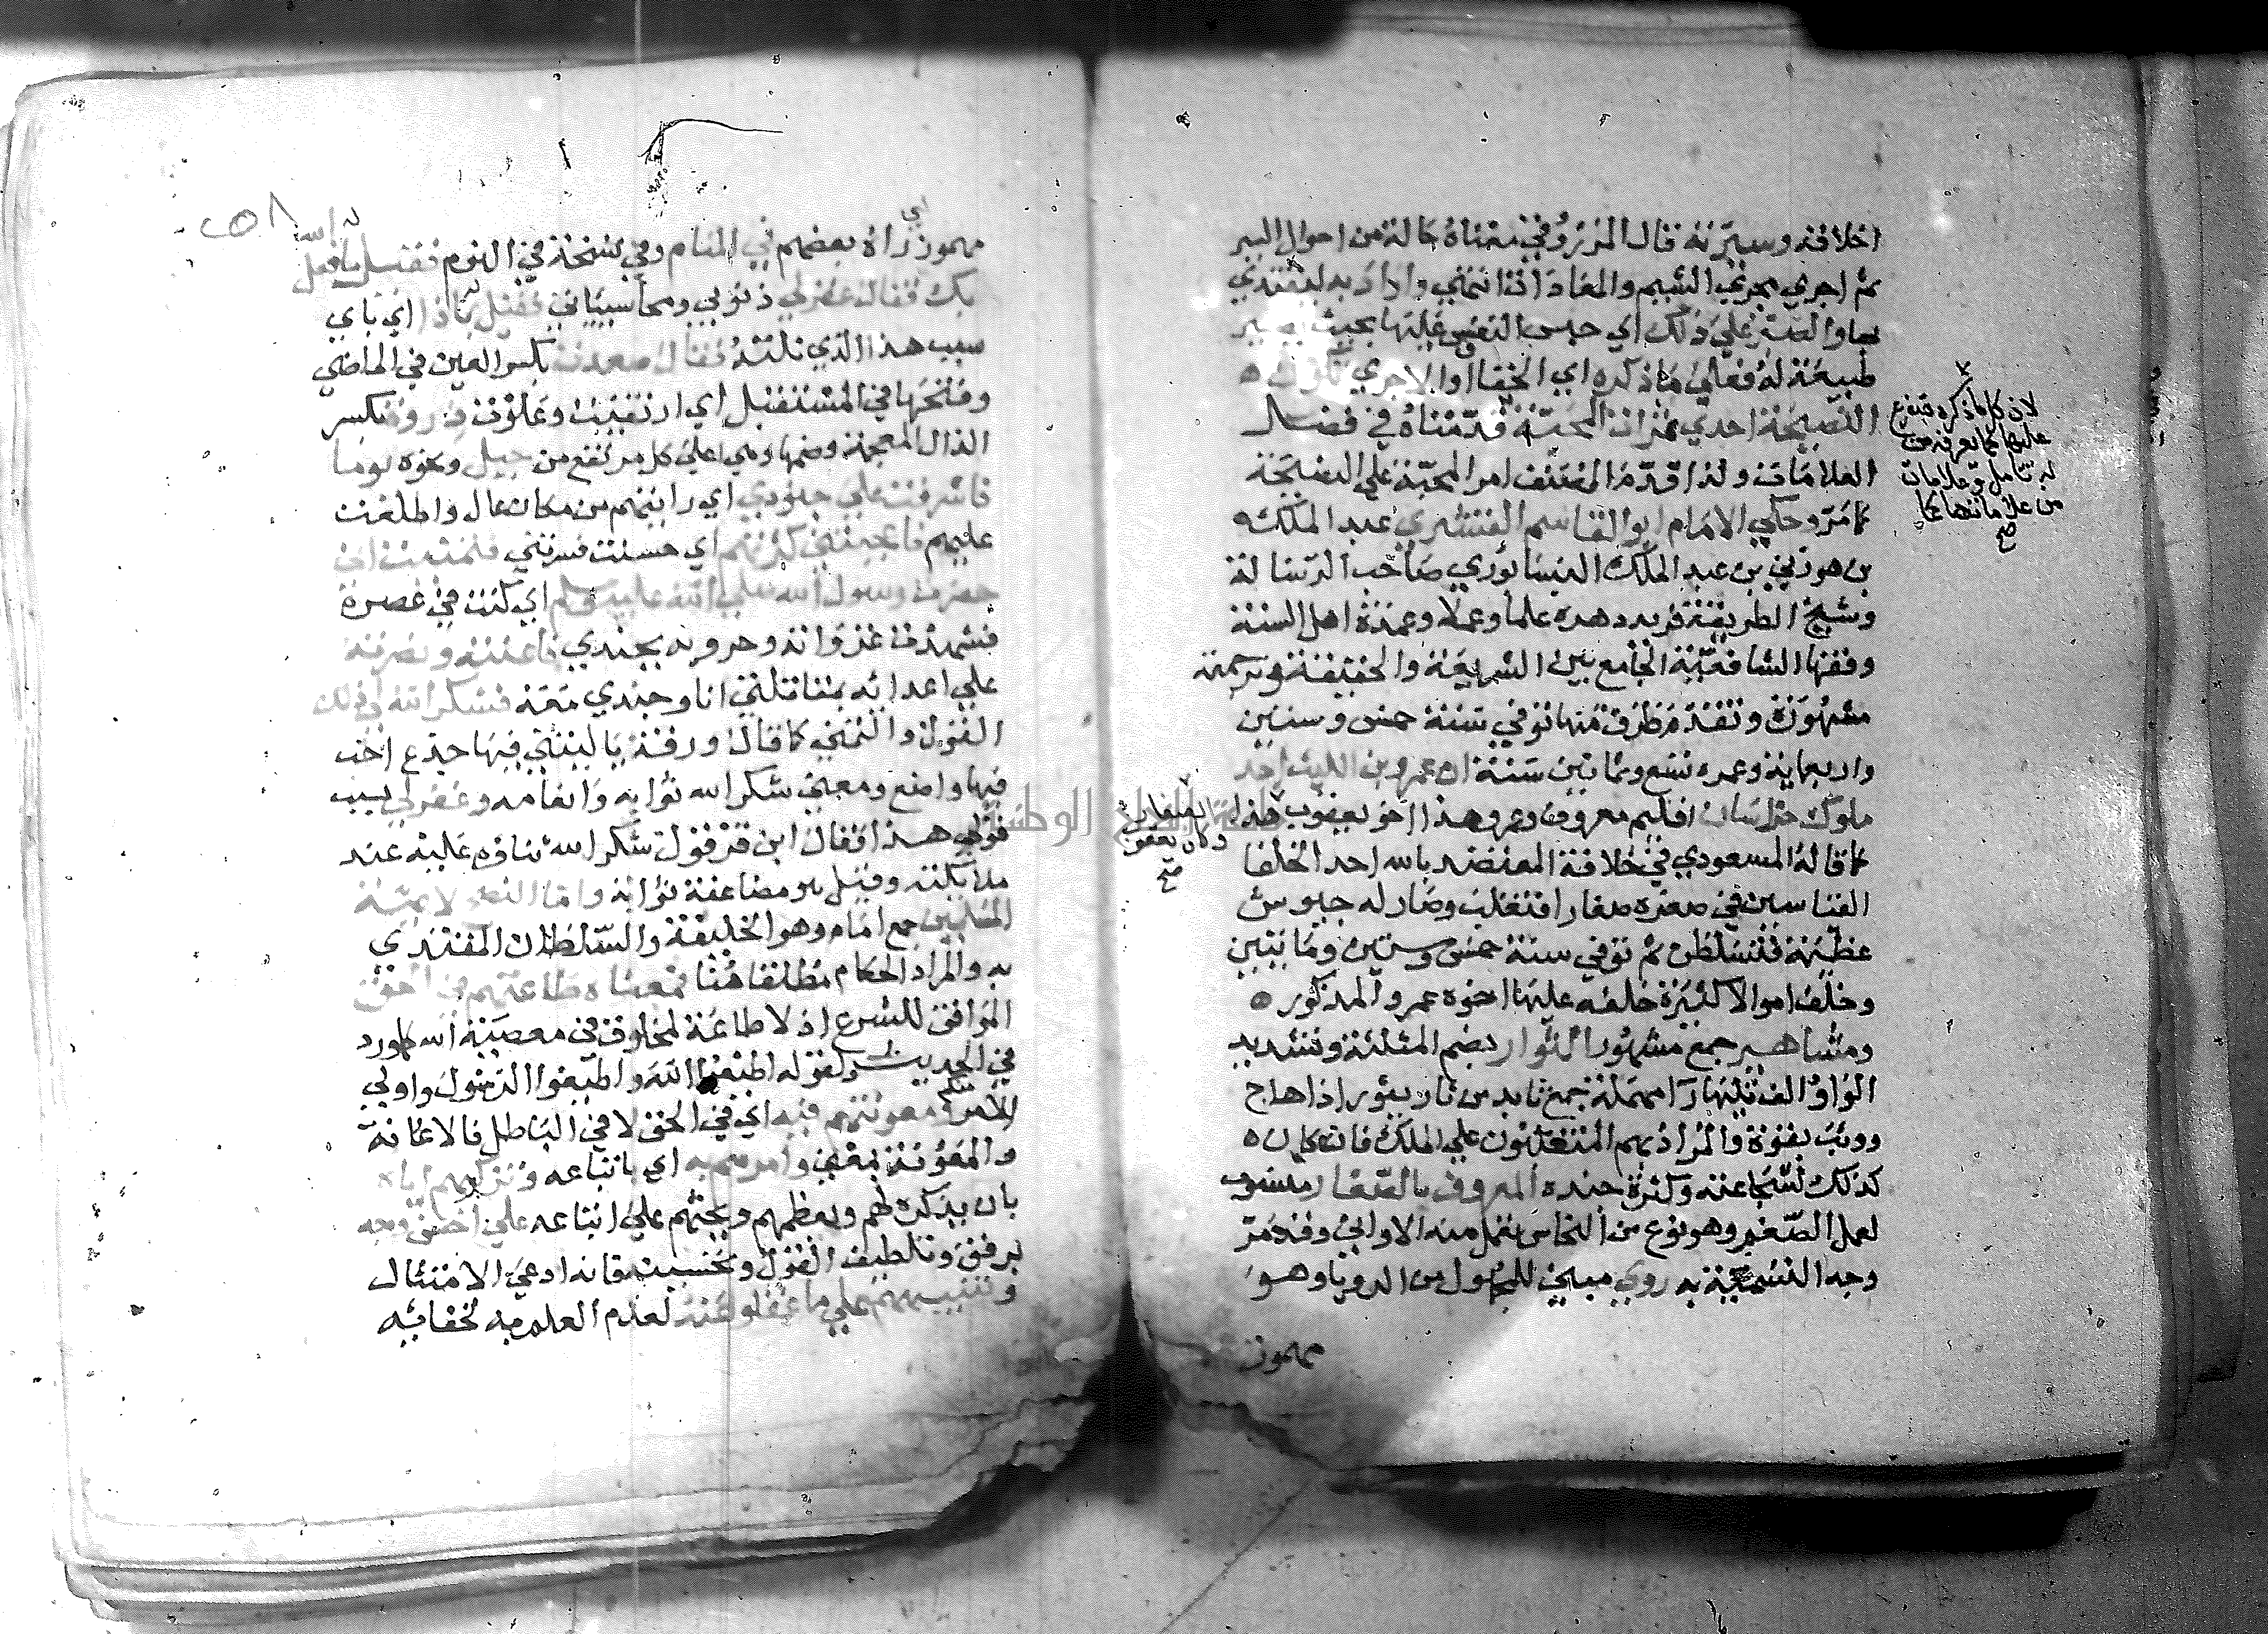 اخلاقه وسيرته قال المرزوقي معناه كالة من احوال البر
ثم اجري مجري الشيم والمعاد اذا انتمي واراد به ليقتدي
بها والصبر علي ذلك اي حبس النفس عليها بحيث يصير
طبيعة له فعلي ما ذكره اي الخفا او الاجري تكون
النصيحة احدي ثمرات المحبة قدمناه في فصل
العلامات ولذا قدم المصنف امر المحبة علي النصيحة
كما مر وحكي الامام ابو القاسم القشيري عبد الملك
بن هوزن بن عبد الملك النيسابوري صاحب الرسالة
وشيخ الطريقة فريد دهره علما وعملا وعمدة اهل السنة
وفقها الشافعية الجامع بين الشريعة والحقيقة وترجمته
مشهورة وتقدم طرف منها توفي سنة خمس وستين
واربعماية وعمره تسع وثمانين سنة ان عمرو بن الليث احد
ملوك خراسان اقليم معروف وعمرو هذا اخو يعقوب هذا
كما قاله المسعودي في خلافة المعتضد بالله احد الخلفا
العباسين في صغره صفارا فتغلب وصار له جيوش
عظيمة فتسلطن ثم توفي سنة خمس وستين وماتين
وخلف اموالا كثيرة خلفه عليها اخوه عمرو المذكور
ومشاهير جمع مشهور الثوار بضم المثلثة وتشديد
الواو والف تليها را مهملة جمع ثاير من ثار يثور اذا هاج
ووثب بقوة والمراد بهم المتغلبون علي الملك فانه كان
كذلك لشجاعته وكثرة جنده المعروف بالصفار منسوب
لعمل الصفر وهو نوع من النحاس يعمل منه الاواني وقد مر
وجه التسمية به روي مبني للمجهول من الرويا وهو
مهموز
لان كلما ذكره متفرع
عليها كما يعرفه من
له تامل وعلامات
من علاماتها كما
صح
الصفار
وكان يعقوب
صح
٢٥٨
مهموز اي راه بعضهم في المنام وفي نسخة في النوم فقيل له ما فعل الله
بك فقال غفر لي ذنوبي ومحا سيياتي فقيل له بماذا اي باي
سبب هذا الذي نلته فقال صعدت بكسر العين في الماضي
وفتحها في المستقبل اي ارتقيت وعلوت ذروة بكسر
الذال المعجمة وضمها وهي اعلي كل مرتفع من جبل ونحوه يوما
فاشرفت علي جنودي اي رايتهم من مكان عال واطلعت
عليهم فاعجبتني كثرتهم اي حسنت فسرتني فتمنيت اني
حضرت رسول الله صلي الله عليه وسلم اي كنت في عصره
فشهدت غزواته وحروبه بجندي فاعنته ونصرته
علي اعدائه بمقاتلتي انا وجندي معه فشكر الله لي ذلك
القول والتمني كما قال ورقة يا ليتني فيها جذع اخب
فيها واضع ومعني شكر الله ثوابه وانعامه وغفر لي بسبب
قولي هذا فقال ابن قرقول شكر الله ثناؤه عليه عند
ملايكته وقيل هو مضاعفة ثوابه واما النصح لايمة
المسلمين جمع امام وهو الخليفة والسلطان المقتدي
به والمراد الحكام مطلقا هنا فمعناه طاعتهم في الحق
الموافق للشرع اذ لا طاعة لمخلوق في معصية الله كما ورد
في الحديث ولقوله اطيعوا الله واطيعوا الرسول واولي
الامر منكم ومعونتهم فيه اي في الحق لا في الباطل فالاعانة
والمعونة بمعني وامرهم به اي باتباعه وتذكيرهم اياه
بان يذكره لهم ويعظهم ويحثهم علي اتباعه علي احسن وجه
برفق وتلطيف القول وتحسينه فانه ادعي الامتثال
وتنبيههم علي ما غفلوا عنه لعدم العلم به لخفائه